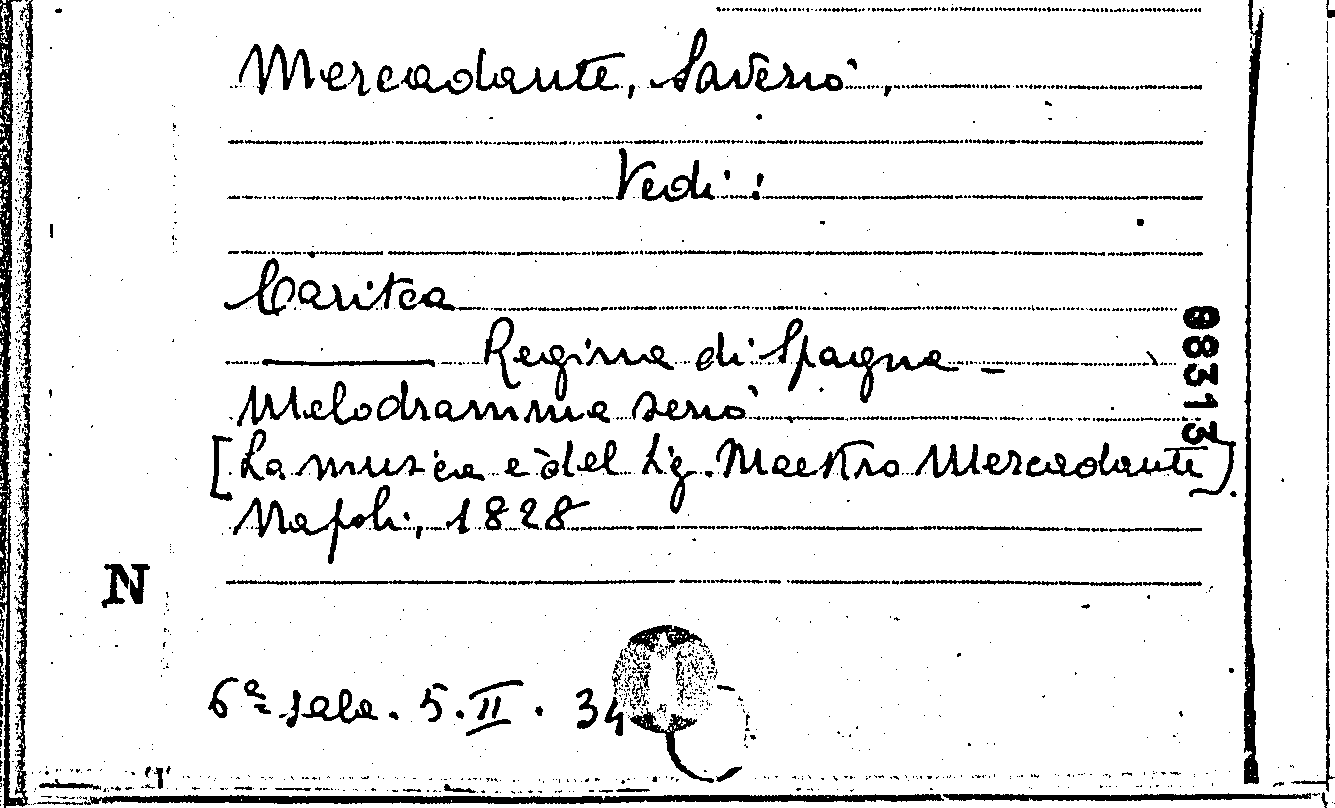 Mercadante, Saverio,
Vedi:
Caritea
——— Regina di Spagna -
Melodramma serio.
[La musica è del Sig. Maestro Mercadante].
Napoli, 1828
98313
N
6ª sala. 5. II. 34